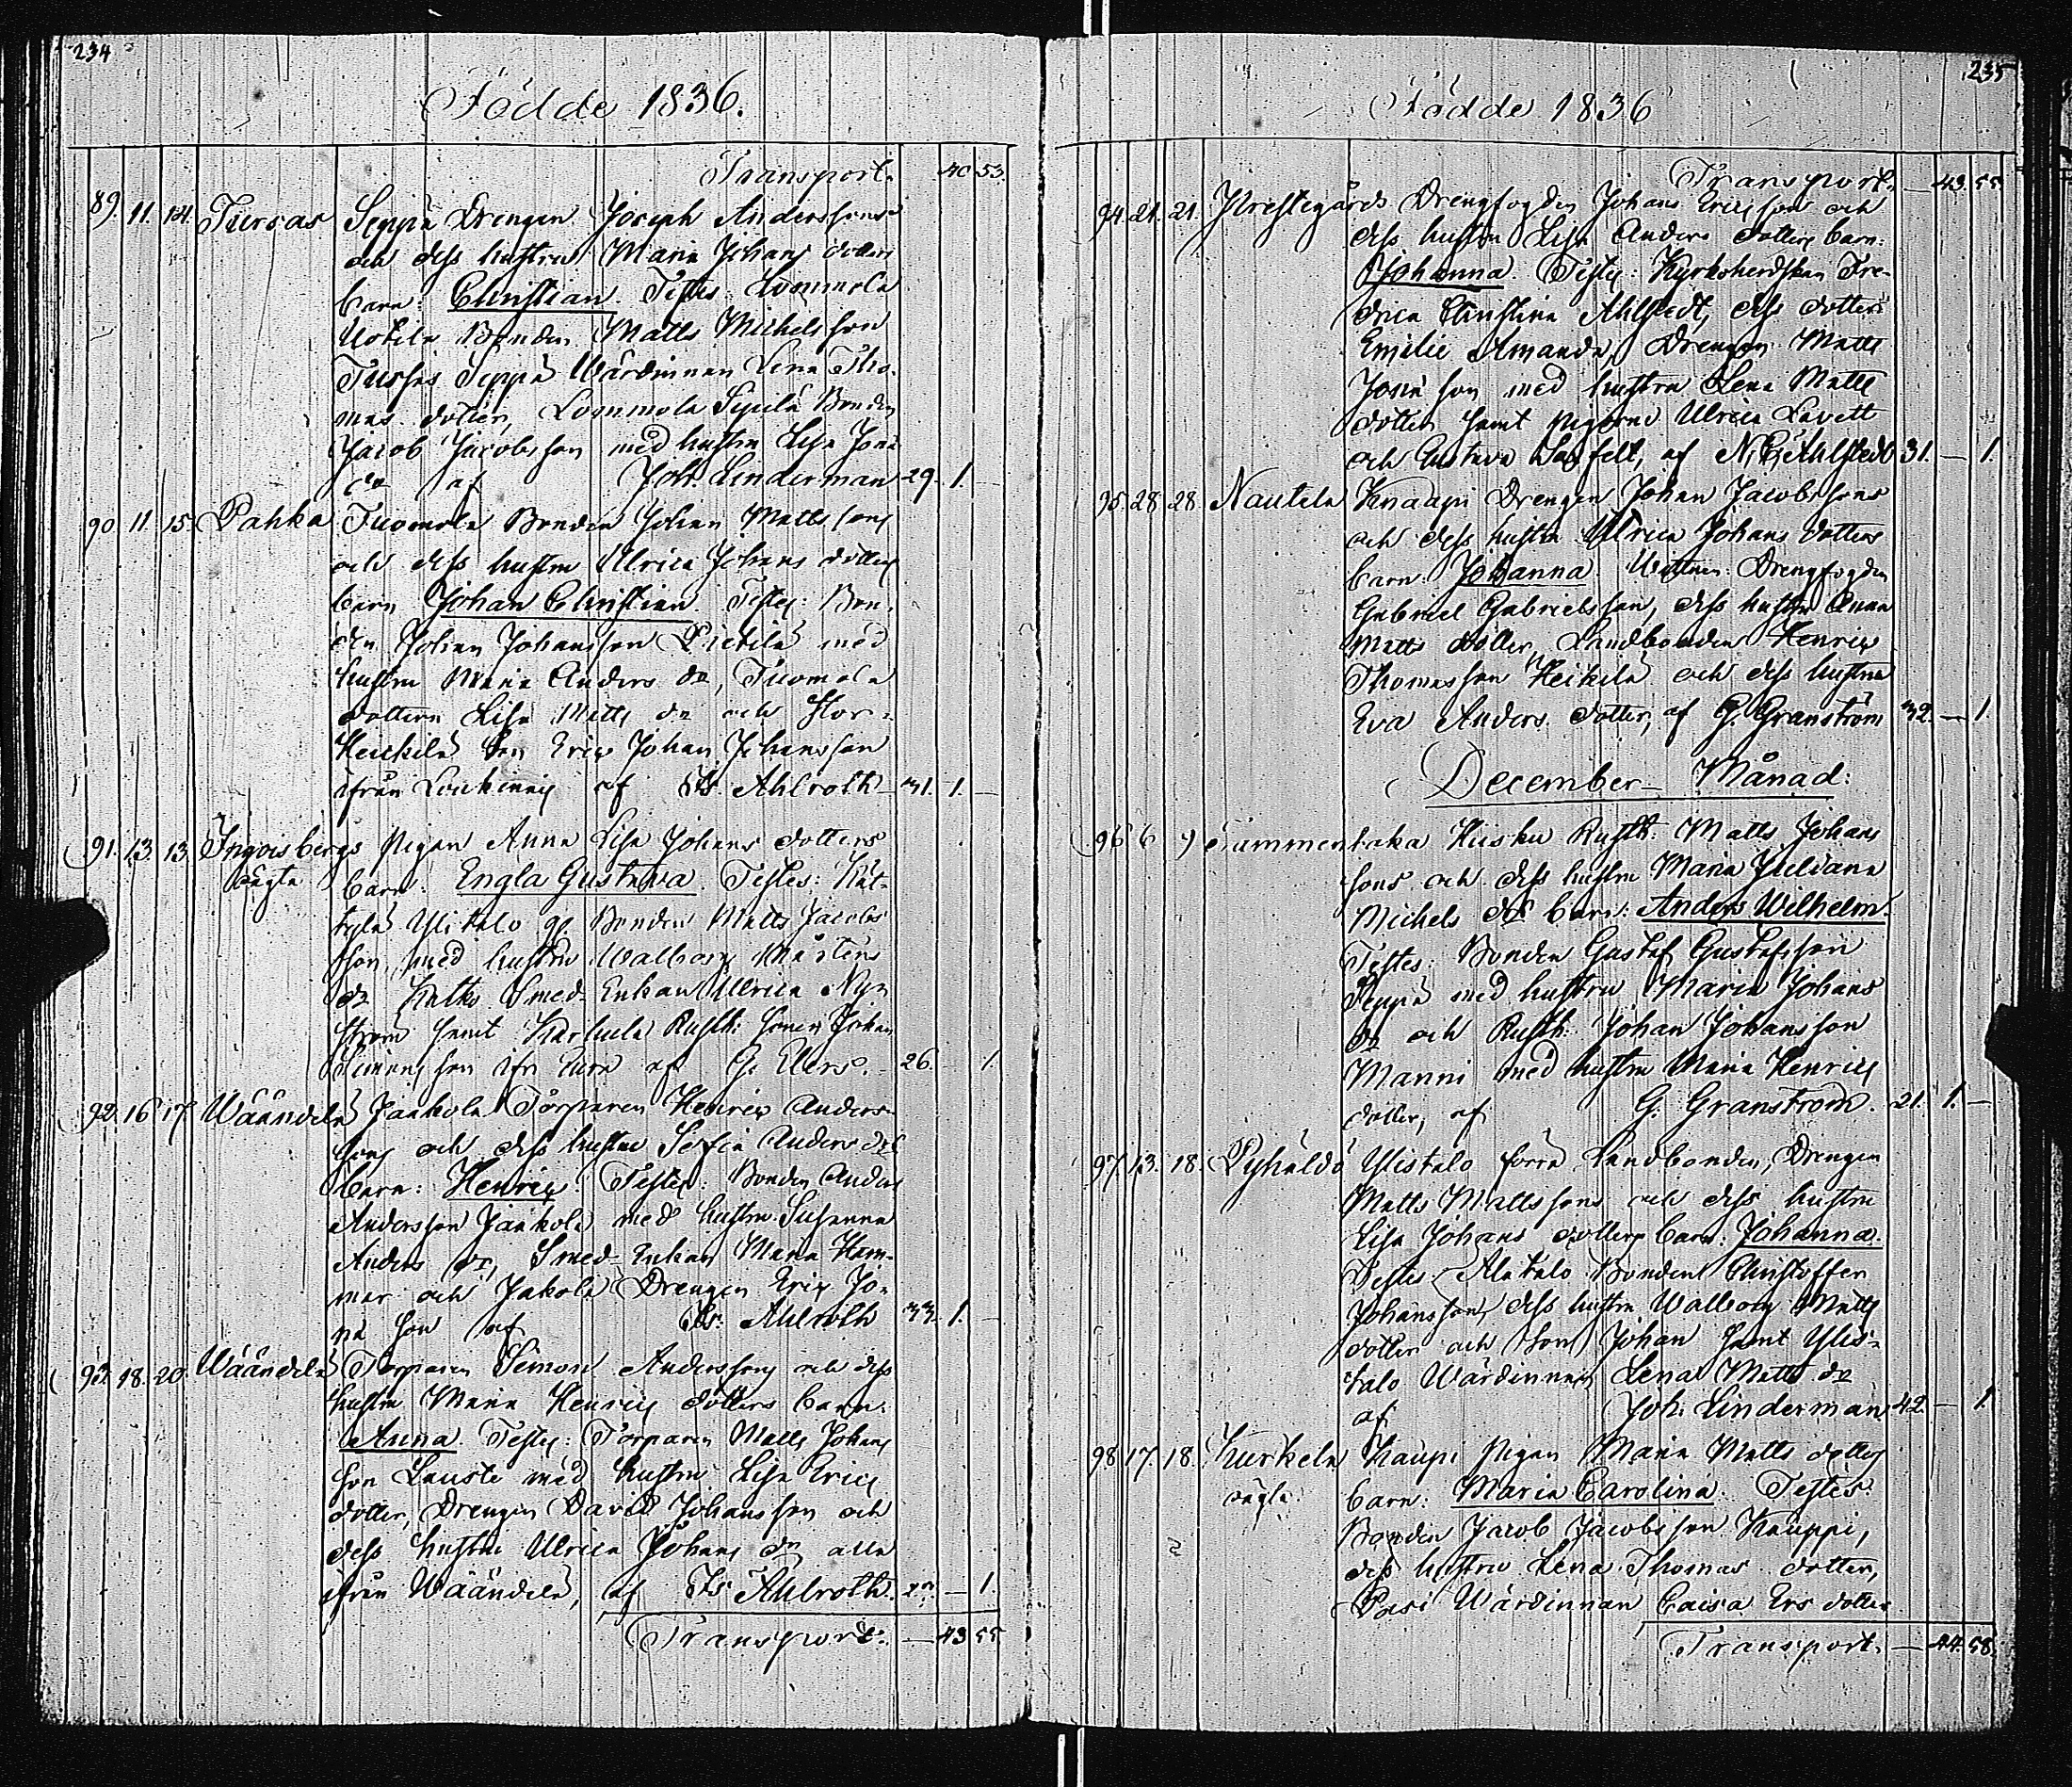 234
Födde 1836.
Transport. 40 53.
89. 11. 14. Tursas Seppä Drengen Joseph Anderssons
och dess hustru Maria Johans dotters
barn: Christian. Testes: Lommola
Uotila Bonden Matts Michelsson
Seppä Wärdinnan Lena Tho-
mas dotter, Lommola Sipilä Bonden
Jacob Jacobsson med hustru Lisa Jona
dr af Joh: Linderman 29. 1. —
90. 11. 15. Pahka Tuomola Bonden Johan Mattssons
och dess hustru Ulrica Johans dotters
barn Johan Christian Testes: Bon-
den Johan Johansson Pietilä med
hustru Maria Anders dr, Tuomola
dottern Lisa Matts dr och Stor-
Heickilä Son Eric Johan Johansson
ifrån af Is: Ahlroth 31. 1. —
91. 13. 13. Ingoisbergs Pigan Anna Lisa Johans dotters
oägta barn: Engla Gustava. Testes: Kät-
tylä Ylitalo Bonden Matts Jacobs
son med hustru Walborg Mårtens
dr Smed-Enkan Ulrica Nyr
ström samt Karhula Rusth: sonen Johan
Simonsson ifr Eura af G. Elers. 26. 1.
92. 16. 17. Wäändelä Jaakola Torparen Henric Anders-
sons och dess hustru Sofia Anders drs
barn: Henric. Testes: Bonden Anders
Andersson Jaakola med hustru Susanna
Anders dr, Smed-Enkan Maria Ham-
mar och Jakola Drengen Eric Jo-
na son af Is: Ahlroth 33. 1. —
93. 18. 20. Wäändelä Torparen Simon Anderssons och dess
hustru Maria Henrics dotters barn:
Anna. Testes: Torparen Matts Johans
son Lauste med hustru Lisa Erics
dotter, Drengen David Johansson och
dess hustru Ulrica Johans dr alla
ifrån Wäändelä, af Is: Ahlroth. — 1.
Transport. — 43 55.
235
Födde 1836
Transport. — 43. 55
94. 21. 21. Prestegårds Drengfogden Johan Ericssons och
dess hustru Lisa Anders dotters barn:
Johanna. Testes: Kyrkoherdskan Fre-
drica Christina Ahlstedt, dess dotter
Emilie Amanda, Drengen Matts
Josia son med hustru Lena Matts
dotter samt Pigorne Ulrica Lavett
och Gustava af N. G. Ahlstedt 31. — 1.
95. 28. 28. Nautela Knaapi Drengen Johan Jacobssons
och dess hustru Ulrica Johans dotters
barn: Johanna. Wittnen: Drengfogden
Gabriel Gabrielsson, dess hustru Anna
Matts dotter, Landbonden Henric
Thomasson Heikilä och dess hustru
Eva Anders dotter, af G. Granström 32. — 1.
December Månad:
96 6 9 Tammentaka Huhu Rusth: Matts Johans
sons och dess hustru Maria Juliana
Michels drs barn: Anders Wilhelm.
Testes: Bonden Gustaf Gustafsson
Seppä med hustru Maria Johans
dr och Rusth: Johan Johansson
Manni med hustru Maria Henrics
dotter, af G. Granström. 21. 1. —
97. 13. 18. Pyhäldö Ylistalo förra Landbonden, Drengen
Matts Mattssons och dess hustru
Lisa Johans dotters barn: Johanna.
Testes Alatalo Bonden Christoffer
Johansson, dess hustru Walborg Matts
dotter och Son Johan samt Ylis-
talo Wärdinnan Lena Matts dr
af Joh: Linderman 42. — 1.
98 17. 18. Kurkela Kaupi Pigan Maria Matts dotters
oägta barn: Maria Carolina. Testes:
Bonden Jacob Jacobsson Kauppi,
dess hustru Lena Thomas dotter,
Pasi Wärdinnan Caisa Ers dotter
Transport. — 44. 58.